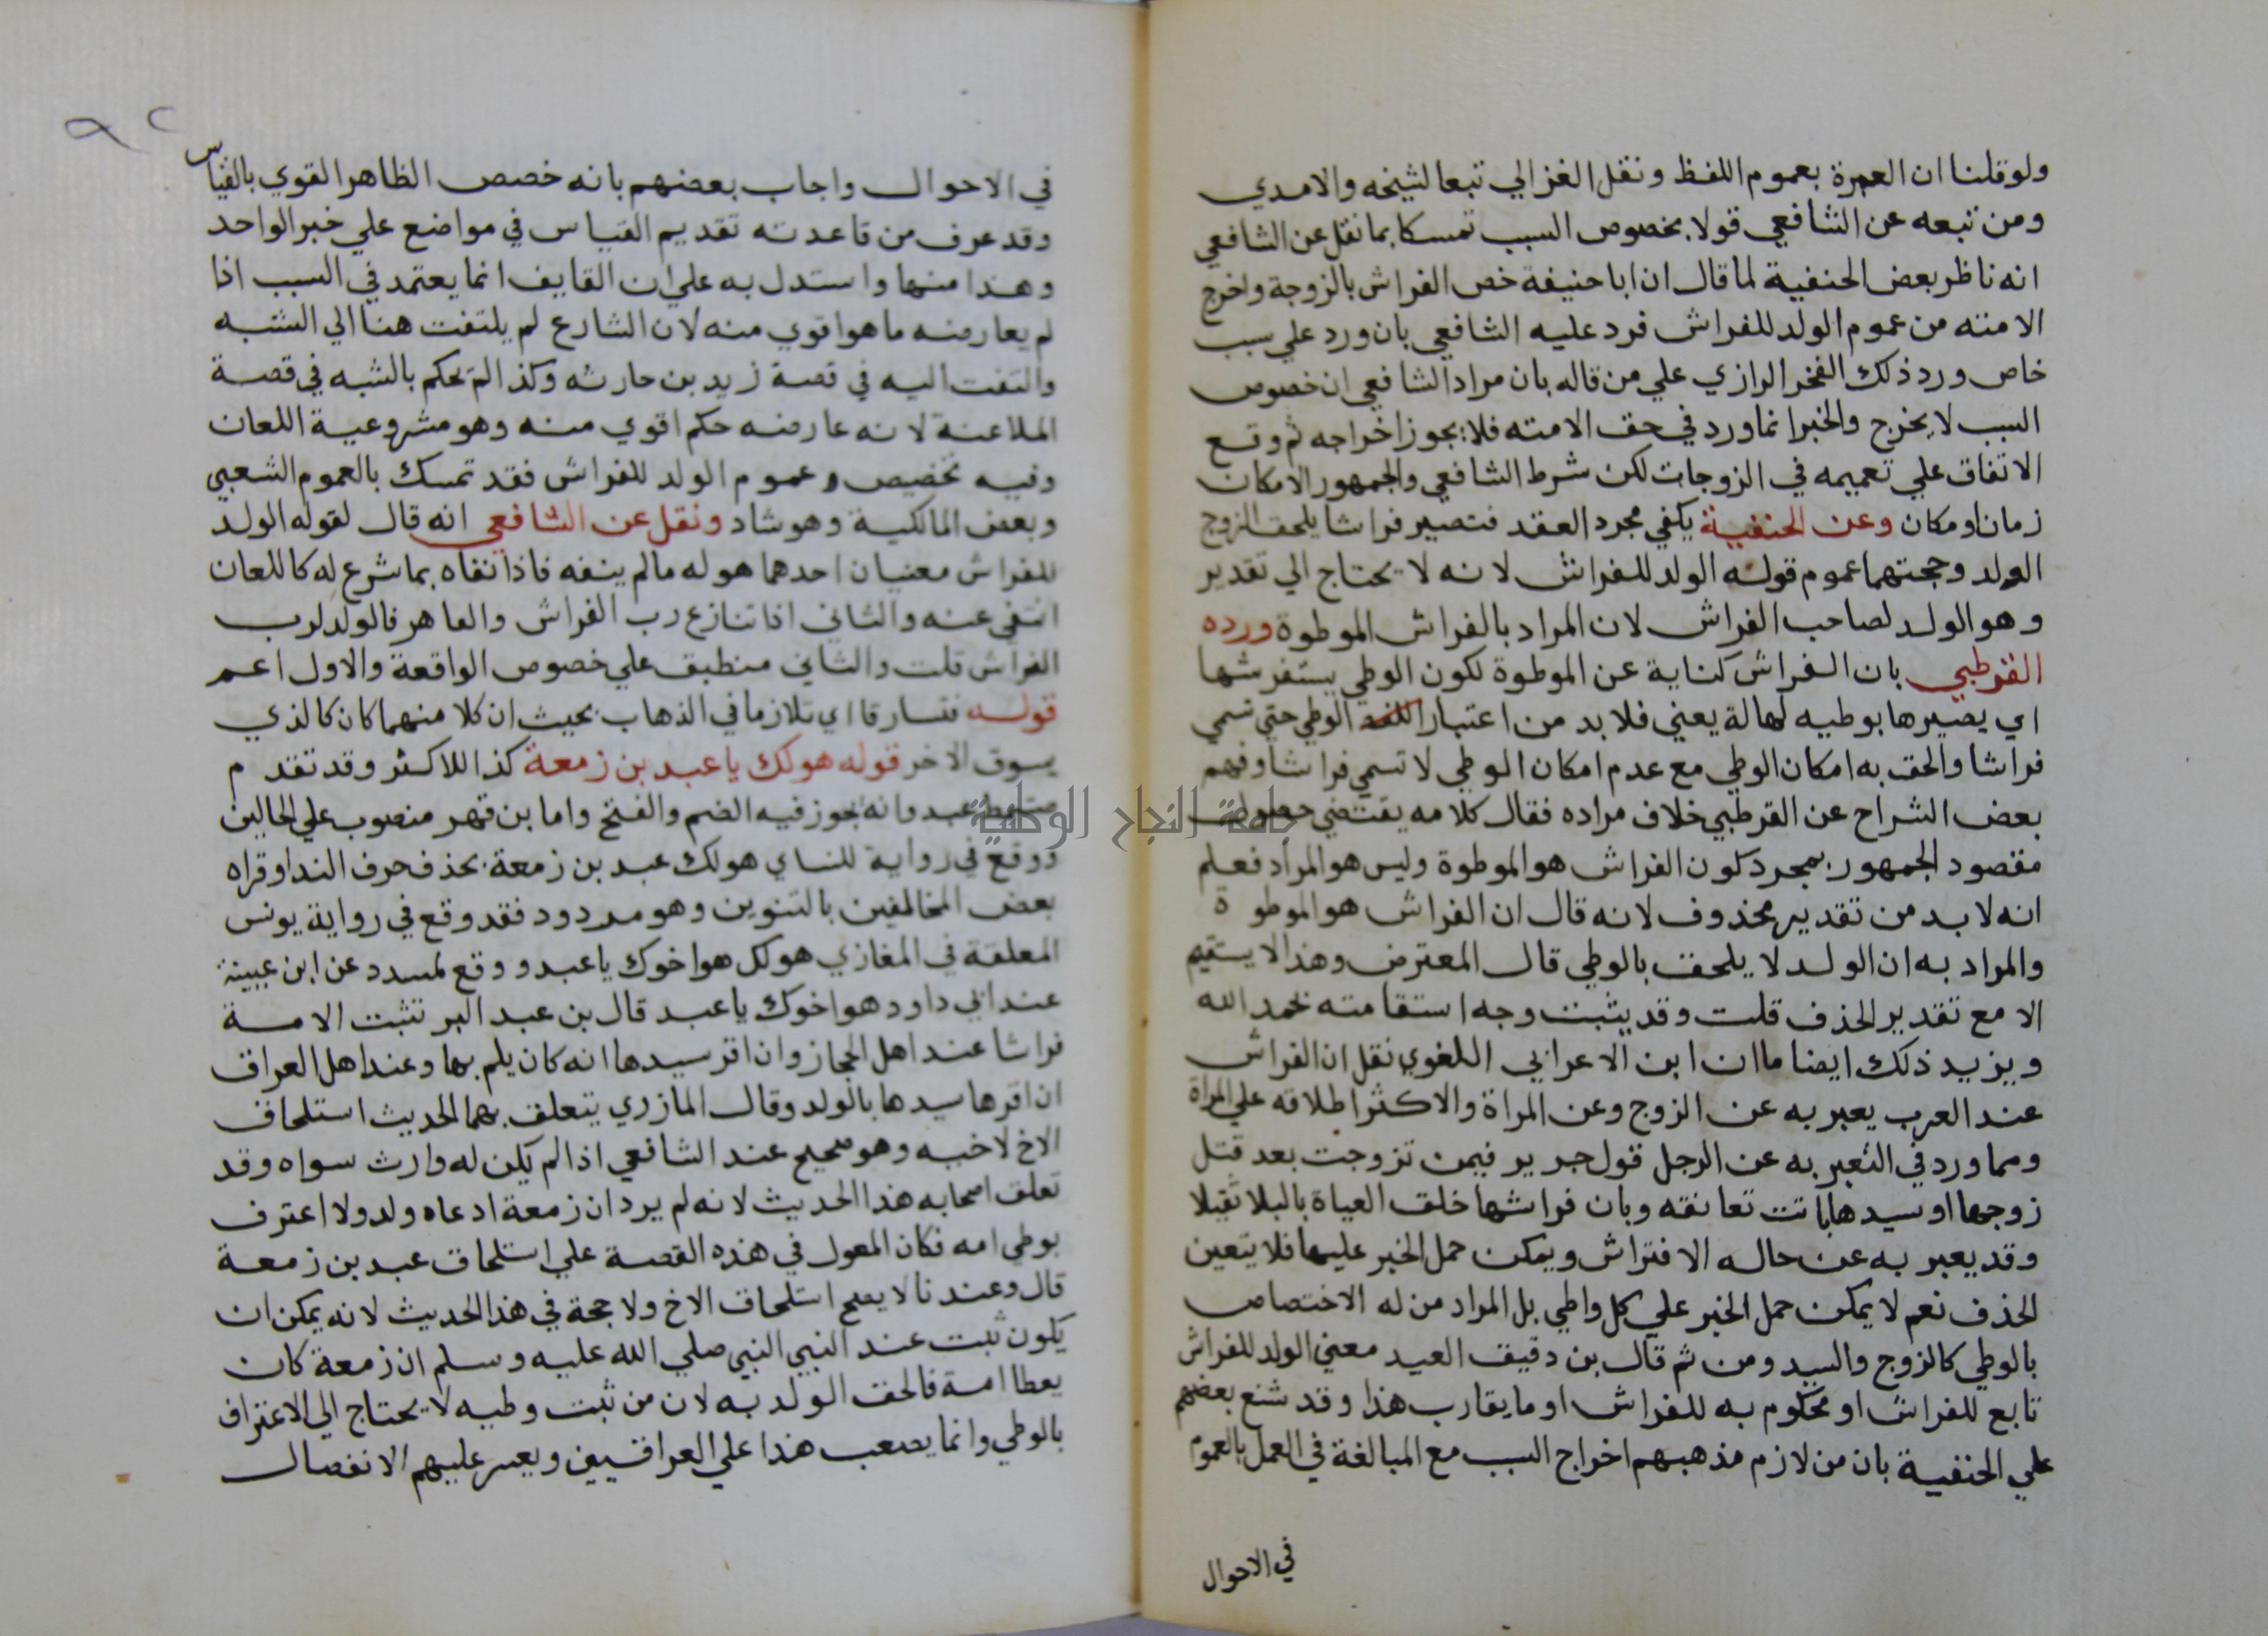 ولو قلنا ان العبرة بعموم اللفظ ونقل الغزالي تبعا لشيخه والامدي
ومن تبعه عن الشافعي قولا بخصوص السبب تمسكا بما نقل عن الشافعي
انه ناظر بعض الحنفية لما قال ان ابا حنيفة خص الفراش بالزوجة واخرج
الامته من عموم الولد للفراش فرد عليه الشافعي بان ورد علي سبب
خاص ورد ذلك الفخر الرازي علي من قاله بان مراد الشافعي ان خصوص
السبب لا يخرج والخبر انما ورد في حق الامته فلا يجوز اخراجه ثم وقع
الاتفاق علي تعميمه في الزوجات لكن شرط الشافعي والجمهور الامكان
زمان او مكان وعن الحنفية يكفي مجرد العقد فتصير فراشا يلحق الزوج
الولد وحجتهما عموم قوله الولد للفراش لانه لا يحتاج الي تقدير
وهو الولد لصاحب الفراش لان المراد بالفراش الموطوة ورده
القرطبي بان الفراش كناية عن الموطوة لكون الوطي يستفرشها
اي يصيرها بوطيه لها لة يعني فلا بد من اعتبار الوطي حتي تسمي
فراشا والحق به امكان الوطي مع عدم امكان الوطي لا تسمي فراشا وفهم
بعض الشراح عن القرطبي خلاف مراده فقال كلامه يقتضي حصول
مقصود الجمهور بمجرد كون الفراش هو الموطوة وليس هو المراد فعلم
انه لا بد من تقدير محذوف لانه قال ان الفراش هو الموطوة
والمراد به ان الولد لا يلحق بالوطي قال المعترض وهذا لا يستقيم
الا مع تقدير الحذف قلت وقد يثبت وجه استقامته بحمد الله
ويزيد ذلك ايضا ما ان ابن الاعرابي اللغوي نقل ان الفراش
عند العرب يعبر به عن الزوج وعن المراة والاكثر اطلاقه علي المراة
ومما ورد في التعبير به عن الرجل قول جرير فيمن تزوجت بعد قتل
زوجها او سيدها باتت تعانقه وبات فراشها خلق العباة بالبلا ثقيلا
وقد يعبر به عن حاله الافتراش ويمكن حمل الخبر عليها فلا يتعين
الحذف نعم لا يمكن حمل الخبر علي كل واطي بل المراد من له الاختصاص
بالوطي كالزوج والسيد ومن ثم قال بن دقيق العيد معني الولد للفراش
تابع للفراش او محكوم به للفراش او ما يقارب هذا وقد شنع بعضهم
علي الحنفية بان من لازم مذهبهم اخراج السبب مع المبالغة في العمل بالعموم
في الاحوال
٩٢
في الاحوال واجاب بعضهم بانه خصص الظاهر القوي بالقياس
وقد عرف من قاعدته تقديم القياس في مواضع علي خبر الواحد
وهذا منها واستدل به علي ان القايف انما يعتمد في السبب اذا
لم يعارضه ما هو اقوي منه لان الشارع لم يلتفت هنا الي الشبه
والتفت اليه في قصة زيد بن حارثه وكذا لم يحكم بالشبه في قصة
الملاعنة لانه عارضه حكم اقوي منه وهو مشروعية اللعان
وفيه تخصيص عموم الولد للفراش فقد تمسك بالعموم الشعبي
وبعض المالكية وهو شاد ونقل عن الشافعي انه قال لقوله الولد
للفراش معنيان احدهما هو له ما لم ينفه فاذا نفاه بما شرع له كاللعان
انتفي عنه والثاني اذا تنازع رب الفراش والعاهر فالولد لرب
الفراش قلت والثاني منطبق علي خصوص الواقعة والاول اعم
قوله فتسارقا اي تلازما في الذهاب بحيث ان كلا منهما كان كالذي
يسوق الاخر قوله هو لك يا عبد بن زمعة كذا للاكثر وقد تقدم
ضبط عبد وانه يجوز فيه الضم والفتح واما بن فهر منصوب علي الحالين
ووقع في رواية للنساي هو لك عبد بن زمعة بحذف حرف الندا وقراه
بعض المخالفين بالتنوين وهو مردود فقد وقع في رواية يونس
المعلقة في المغازي هو لك هو اخوك يا عبد ووقع لمسدد عن ابن عيينة
عند ابي داود هو اخوك يا عبد قال بن عبد البر تثبت الامة
فراشا عند اهل الحجاز وان اقر سيدها انه كان يلم بها وعند اهل العراق
ان اقر ها سيدها بالولد وقال المازري يتعلق بهما الحديث استلحاق
الاخ لاخيه وهو صحيح عند الشافعي اذا لم يكن له وارث سواه وقد
تعلق اصحابه هذا الحديث لانه لم يرد ان زمعة ادعاه ولد ولا اعترف
بوطي امه فكان المعول في هذه القصة علي استلحاق عبد بن زمعة
قال وعندنا لا يصح استلحاق الاخ ولا حجة في هذا الحديث لانه يمكن ان
يكون ثبت عند النبي النبي صلي الله عليه وسلم ان زمعة كان
يعطا امة فالحق الولد به لان من ثبت وطيه لا يحتاج الي الاعتراف
بالوطي وانما يصعب هذا علي العراقيين ويعسر عليهم الانفصال
جامعة النجاح الوطنية